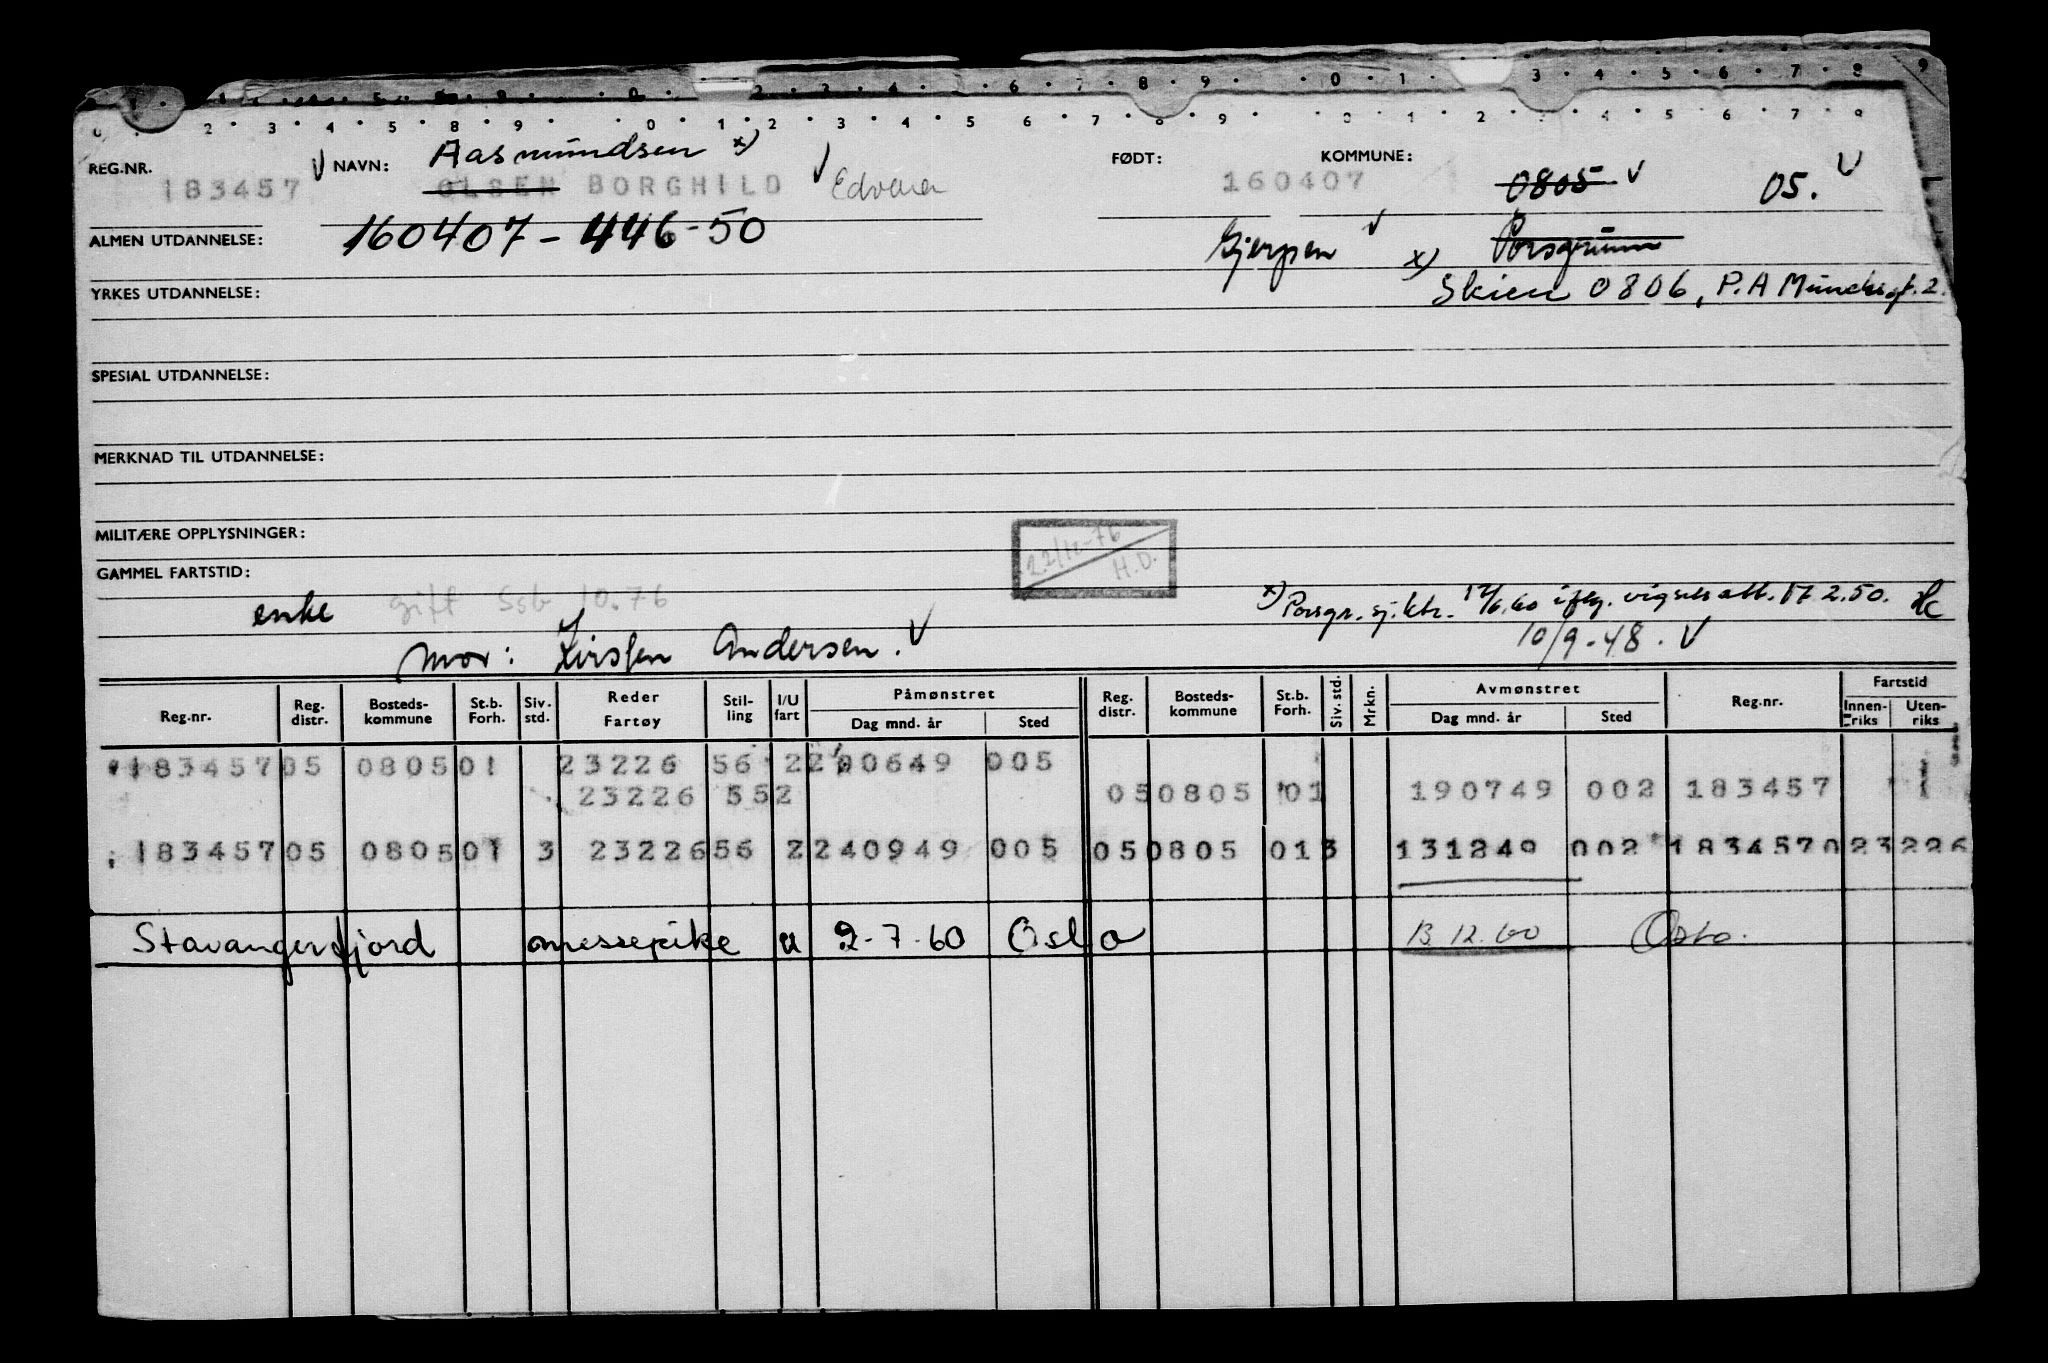 Aasmundsen x)
REG.NR. 183457 V NAVN: OLSEN BORGHILD V Edvarda FØDT: 160407 KOMMUNE: 0805 V 05. V
ALMEN UTDANNELSE: 160407-446-50 Gjerpen V x) Porsgrunn
YRKES UTDANNELSE: Skien 0806, P.A Munchsgt. 2.
SPESIAL UTDANNELSE:
MERKNAD TIL UTDANNELSE:
MILITÆRE OPPLYSNINGER: 22/12-76 H.D.
GAMMEL FARTSTID:
enke gift Ssb 10.76 x) Porsgr. sj.ktr. 17/6.60 iflg. vigselsatt. 17 2.50. Hc
mor: Kirsten Andersen. V 10/9-48. V
Reg.nr. Reg. distr. Bosteds-kommune St.b. Forh. Siv. std. Reder Fartøy Stil-ling I/U fart Påmønstret Dag mnd. år Sted Reg. distr. Bosteds-kommune St.b. Forh. Siv. std. Mrkn. Avmønstret Dag mnd. år Sted Reg.nr. Fartstid Innen-riks Uten-riks
183457 05 0805 01 23226 56 2 220649 005
23226 55 2 05 0805 01 190749 002 183457
183457 05 0805 01 3 23226 56 2 240949 005 05 0805 01 3 131249 002 183457 0 23 226
Stavangerfjord messepike u 2-7-60 Oslo 13 12.60 Oslo.